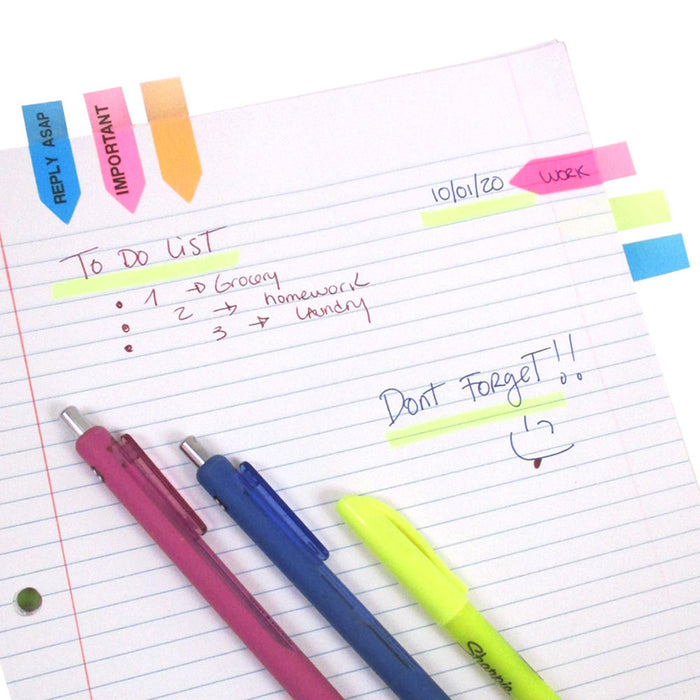 REPLY ASAP
IMPORTANT
10/01/20
WORK
TO DO LIST
• 1 → Grocery
• 2 → homework
• 3 → Laundry
Dont Forget!!
Sharpie